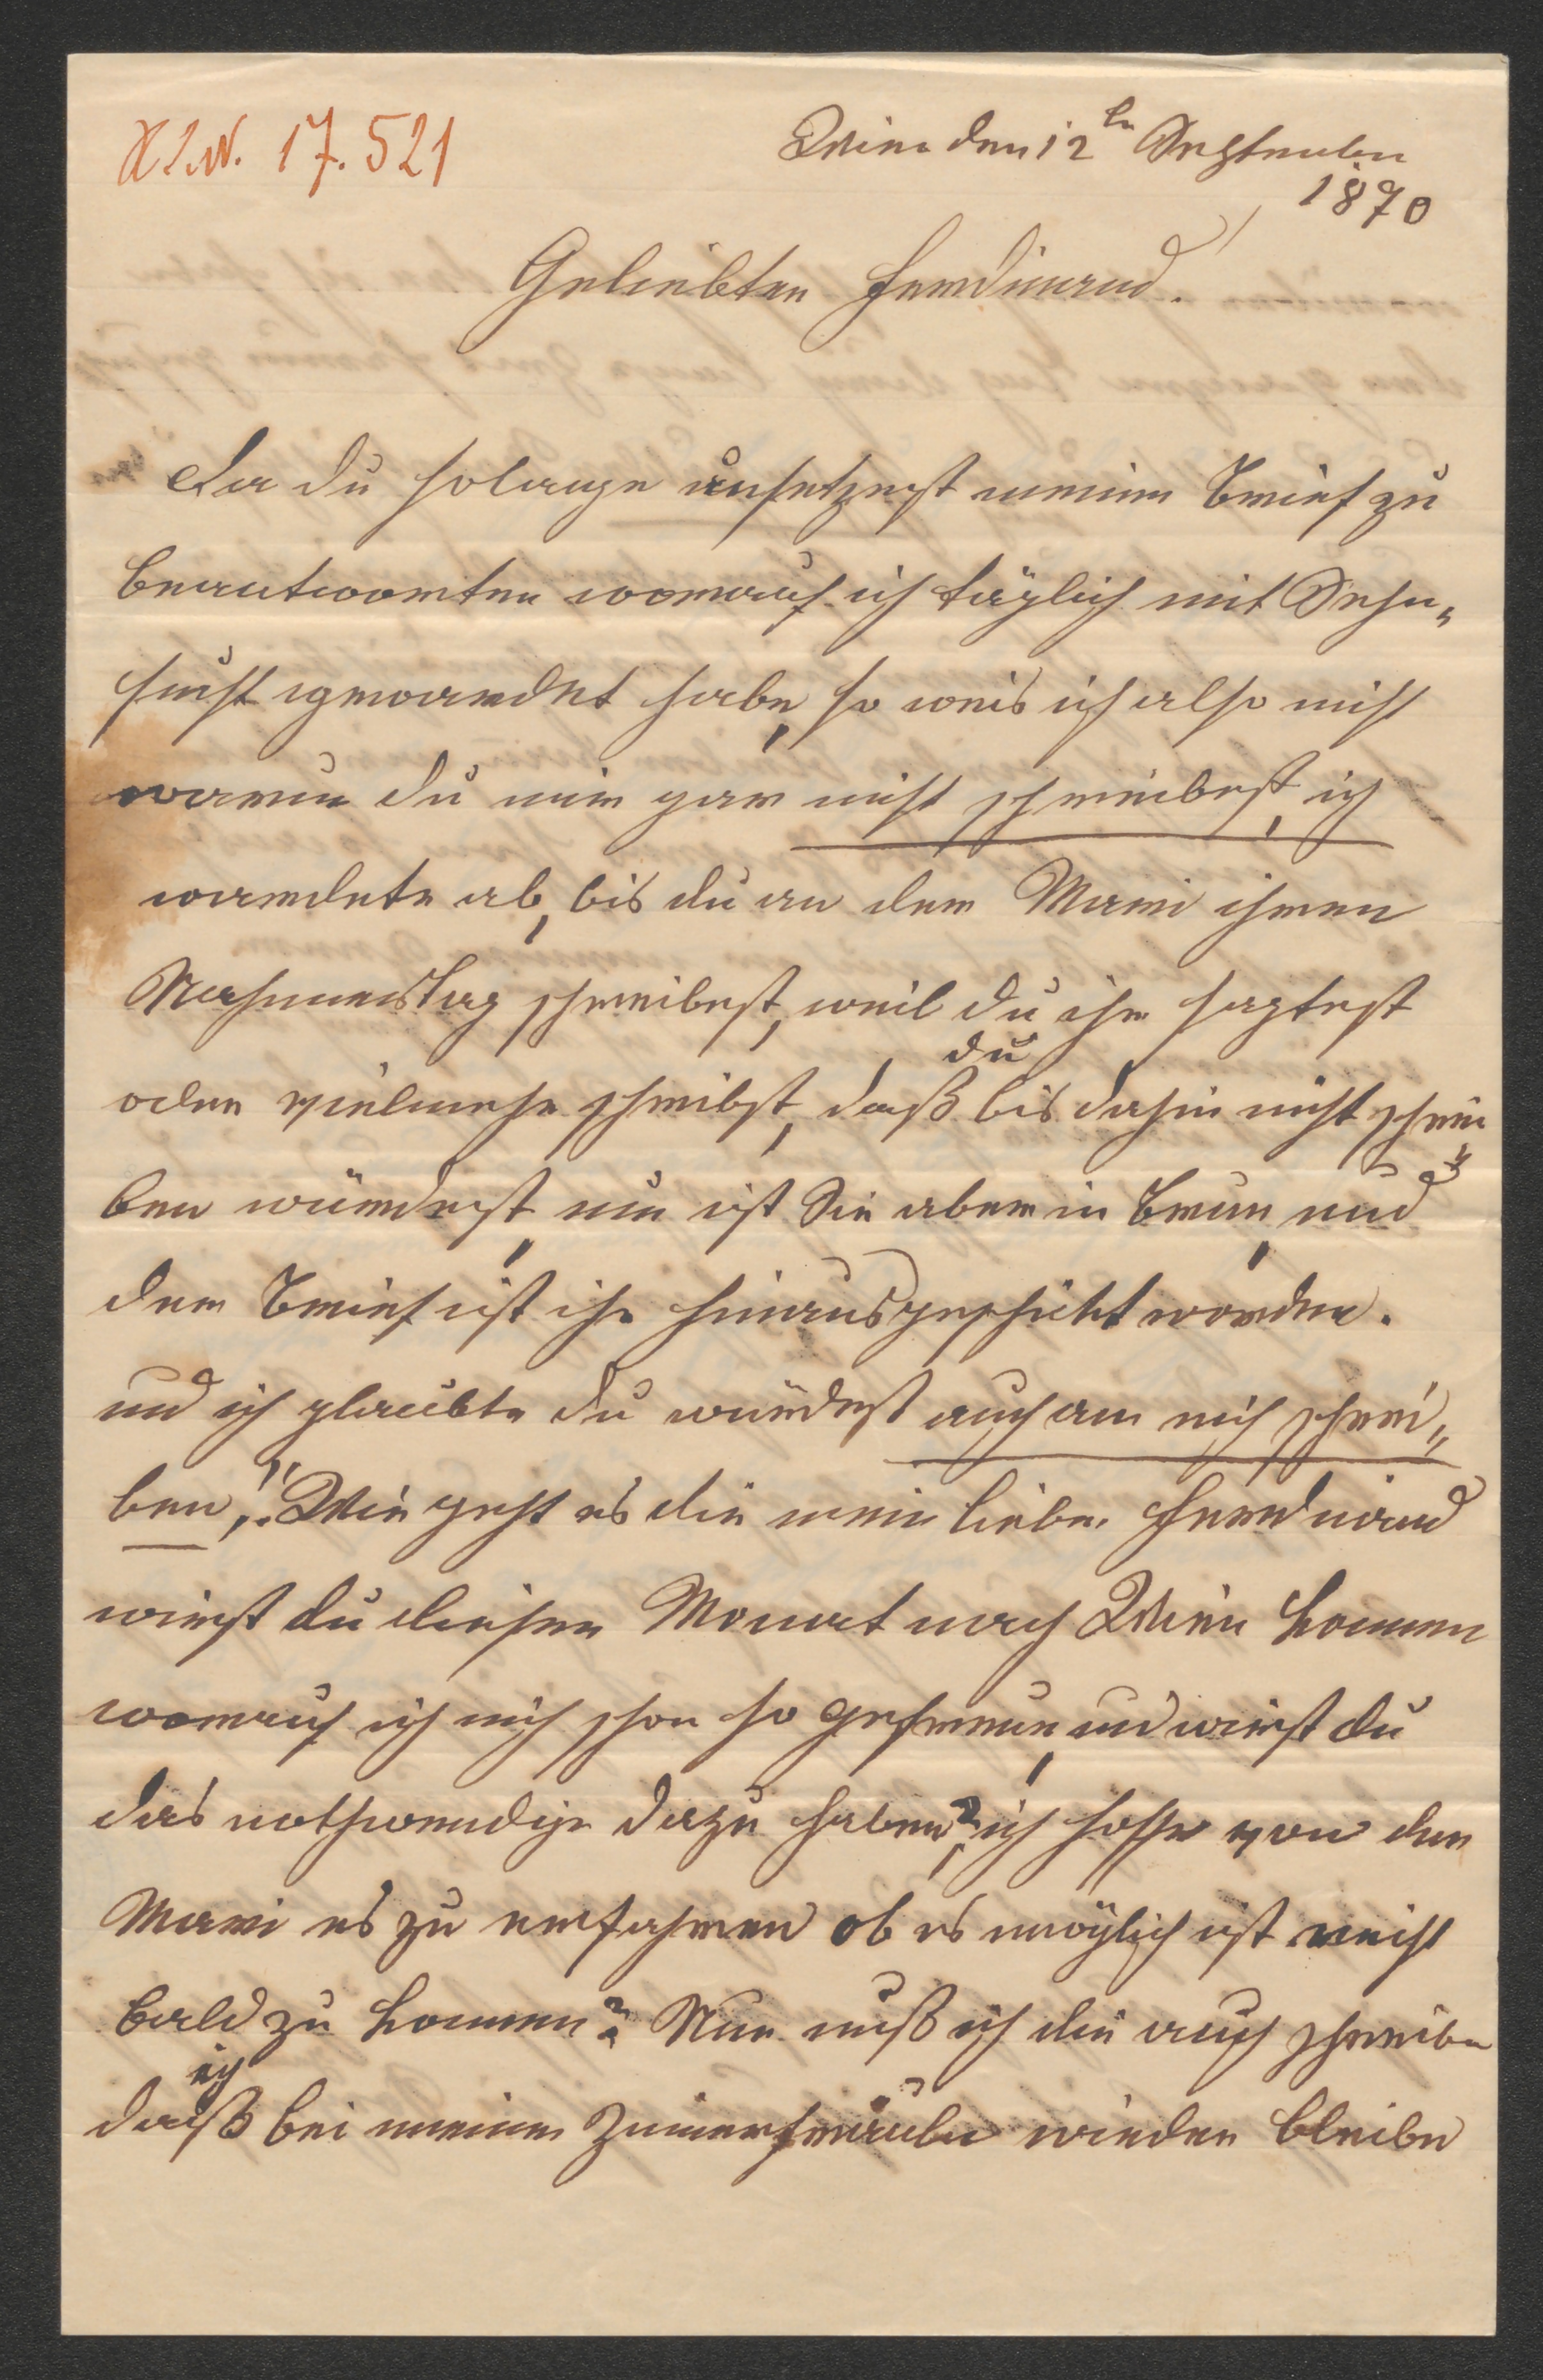 H.I.N. 17.521
Wien den 12ten September
1870
Geliebter Ferdinand!
Da du solange ansetzest meinen Brief zu
beantworten worrauf ich täglich mit Sehn„
sucht gewardet habe, so weis ich also nicht
warum du mir gar nicht schreibest, ich
wardete ab, bis du an der Mami ihren
Nahmenstag schreibest, weil du ihr sagtest
du
oder vielmehr schreibst, daß bis dahin nicht schrei„
ben würdest, nun ist Sie aber in Brun, und
der Brief ist ihr hinausgeschickt worden.
und ich glaubte du würdest auch an mich schrei„
ben,! Wie geht es dir mein lieber Ferdinand
wirst du diesen Monat nach Wien kommen
worrauf ich mich schon so gefreuen, und wirst du
das nothwendige dazu haben?, ich hoffe von der
Mami es zu erfahren ob es möglich ist recht
bald zu kommen? Nun muß ich dir auch schreiben
ich
daß bei meinen Zimerfräulen wieder bleibe